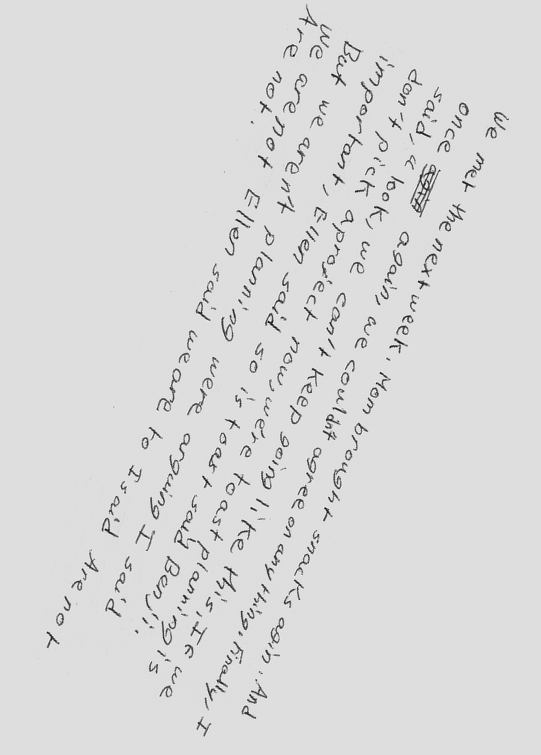 We met the next week. Mom brought snacks agin. And
once again, we couldnt agree on any thing. Finally, I
said, "look, we can't keep going like this. If we
don't pick aproject now, were toast planning is
important, Ellen said so is toast said Benji.
But we arent planning were arguing I said
We are not Ellen said weare to I said Are not
Are not.